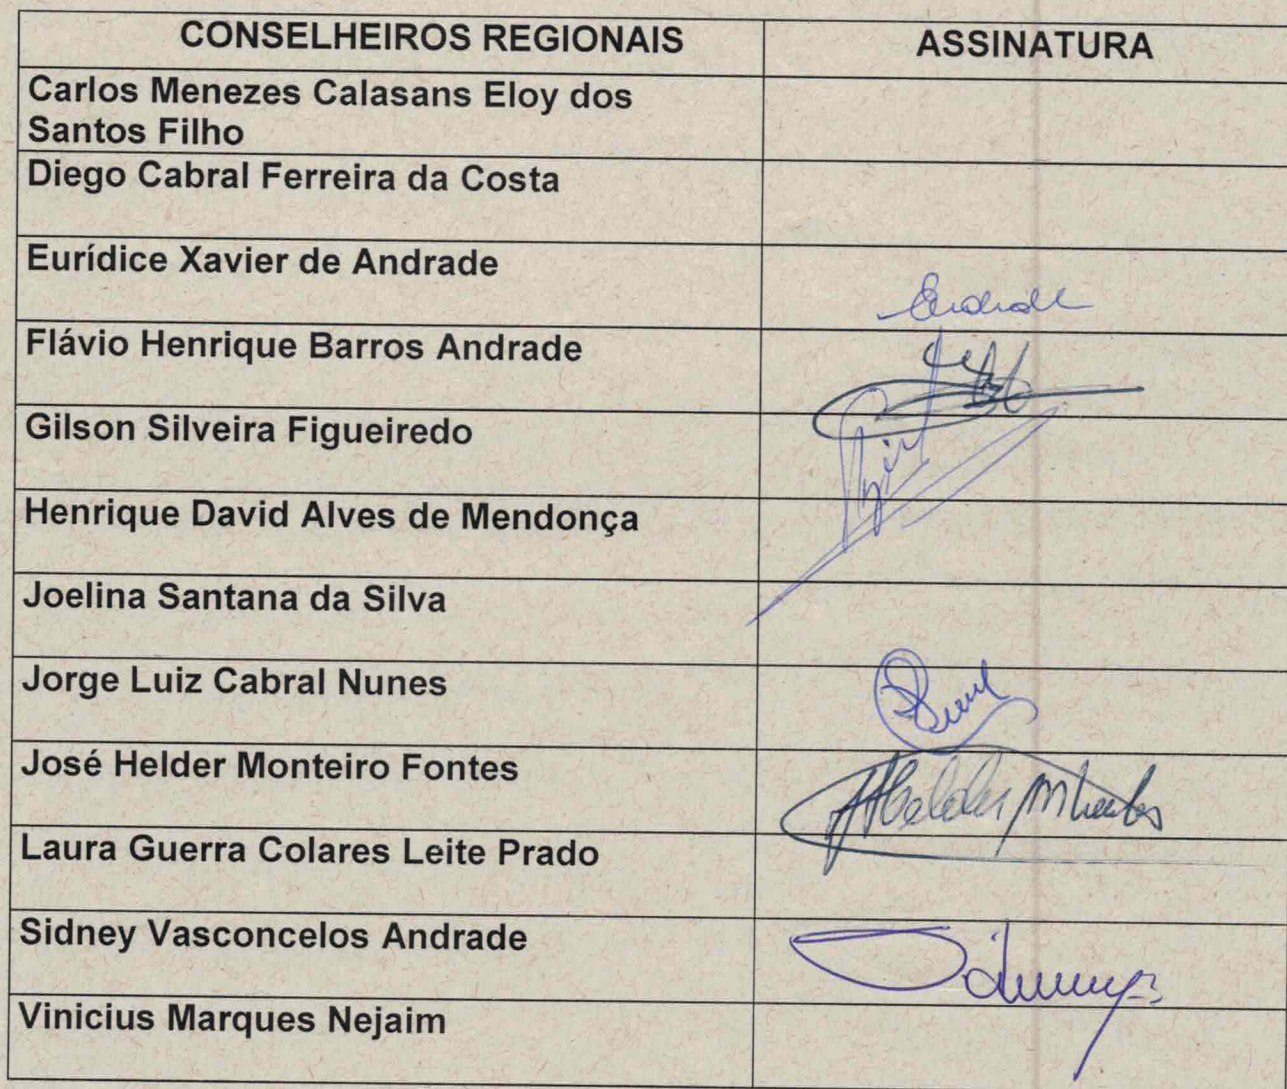 CONSELHEIROS REGIONAIS ASSINATURA
Carlos Menezes Calasans Eloy dos
Santos Filho
Diego Cabral Ferreira da Costa
Eurídice Xavier de Andrade
Flávio Henrique Barros Andrade
Gilson Silveira Figueiredo
Henrique David Alves de Mendonça
Joelina Santana da Silva
Jorge Luiz Cabral Nunes
José Helder Monteiro Fontes
Laura Guerra Colares Leite Prado
Sidney Vasconcelos Andrade
Vinicius Marques Nejaim